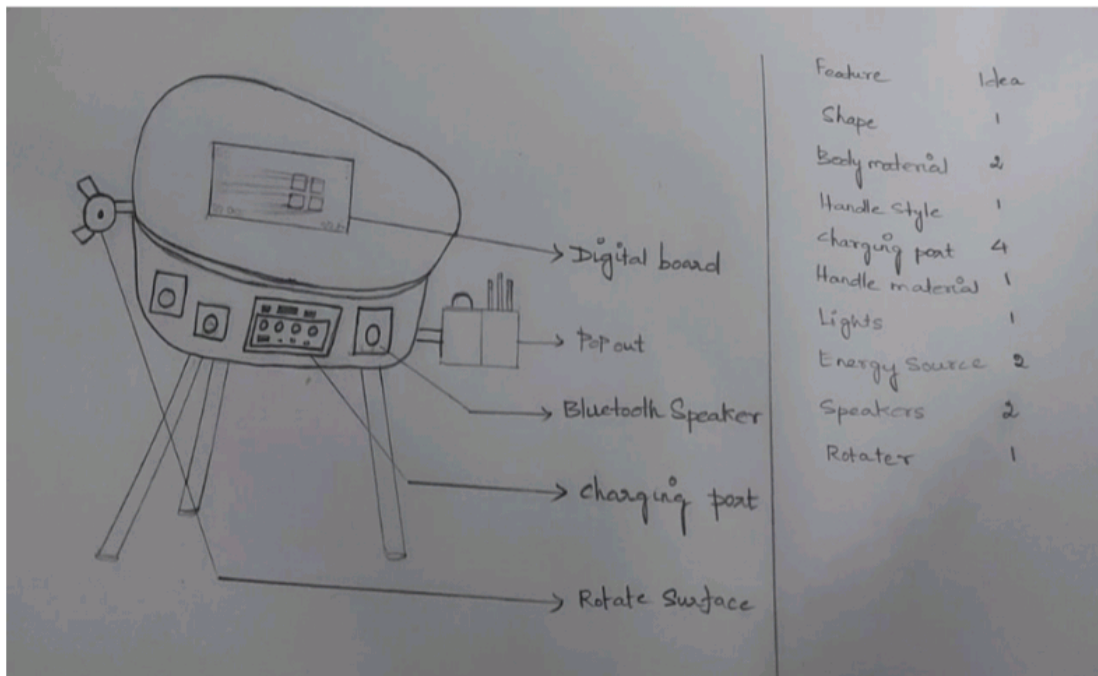 Digital board
Pop out
Bluetooth Speaker
Charging port
Rotate Surface
Feature Idea
Shape 1
Body material 2
Handle Style 1
Charging port 4
Handle material 1
Lights 1
Energy Source 2
Speakers 2
Rotater 1